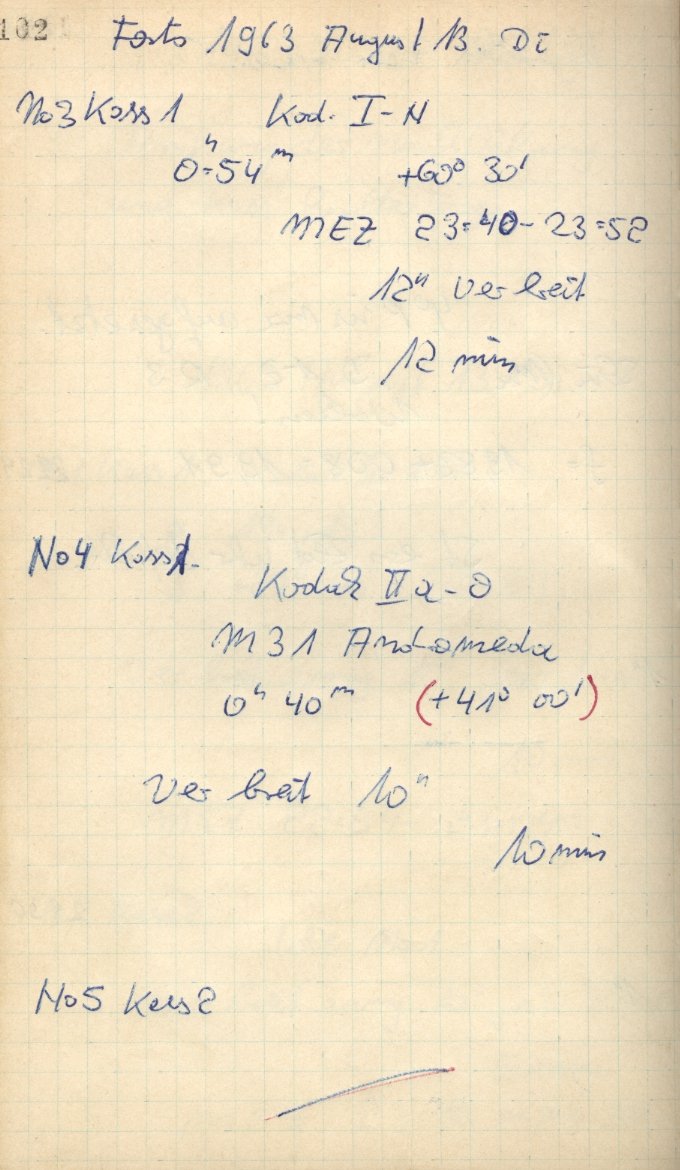 102
Foto 1963 August 13. DI
No3 Kass 1 Kod. I-N
0h 54m +60° 30'
MEZ 23=40 - 23=52
12" Verbreit
12 min
No4 Kass 1.
Kodak IIa-O
M31 Andromeda
0h 40m (+41° 00')
Verbreit 10"
10 min
No5 Kass 2